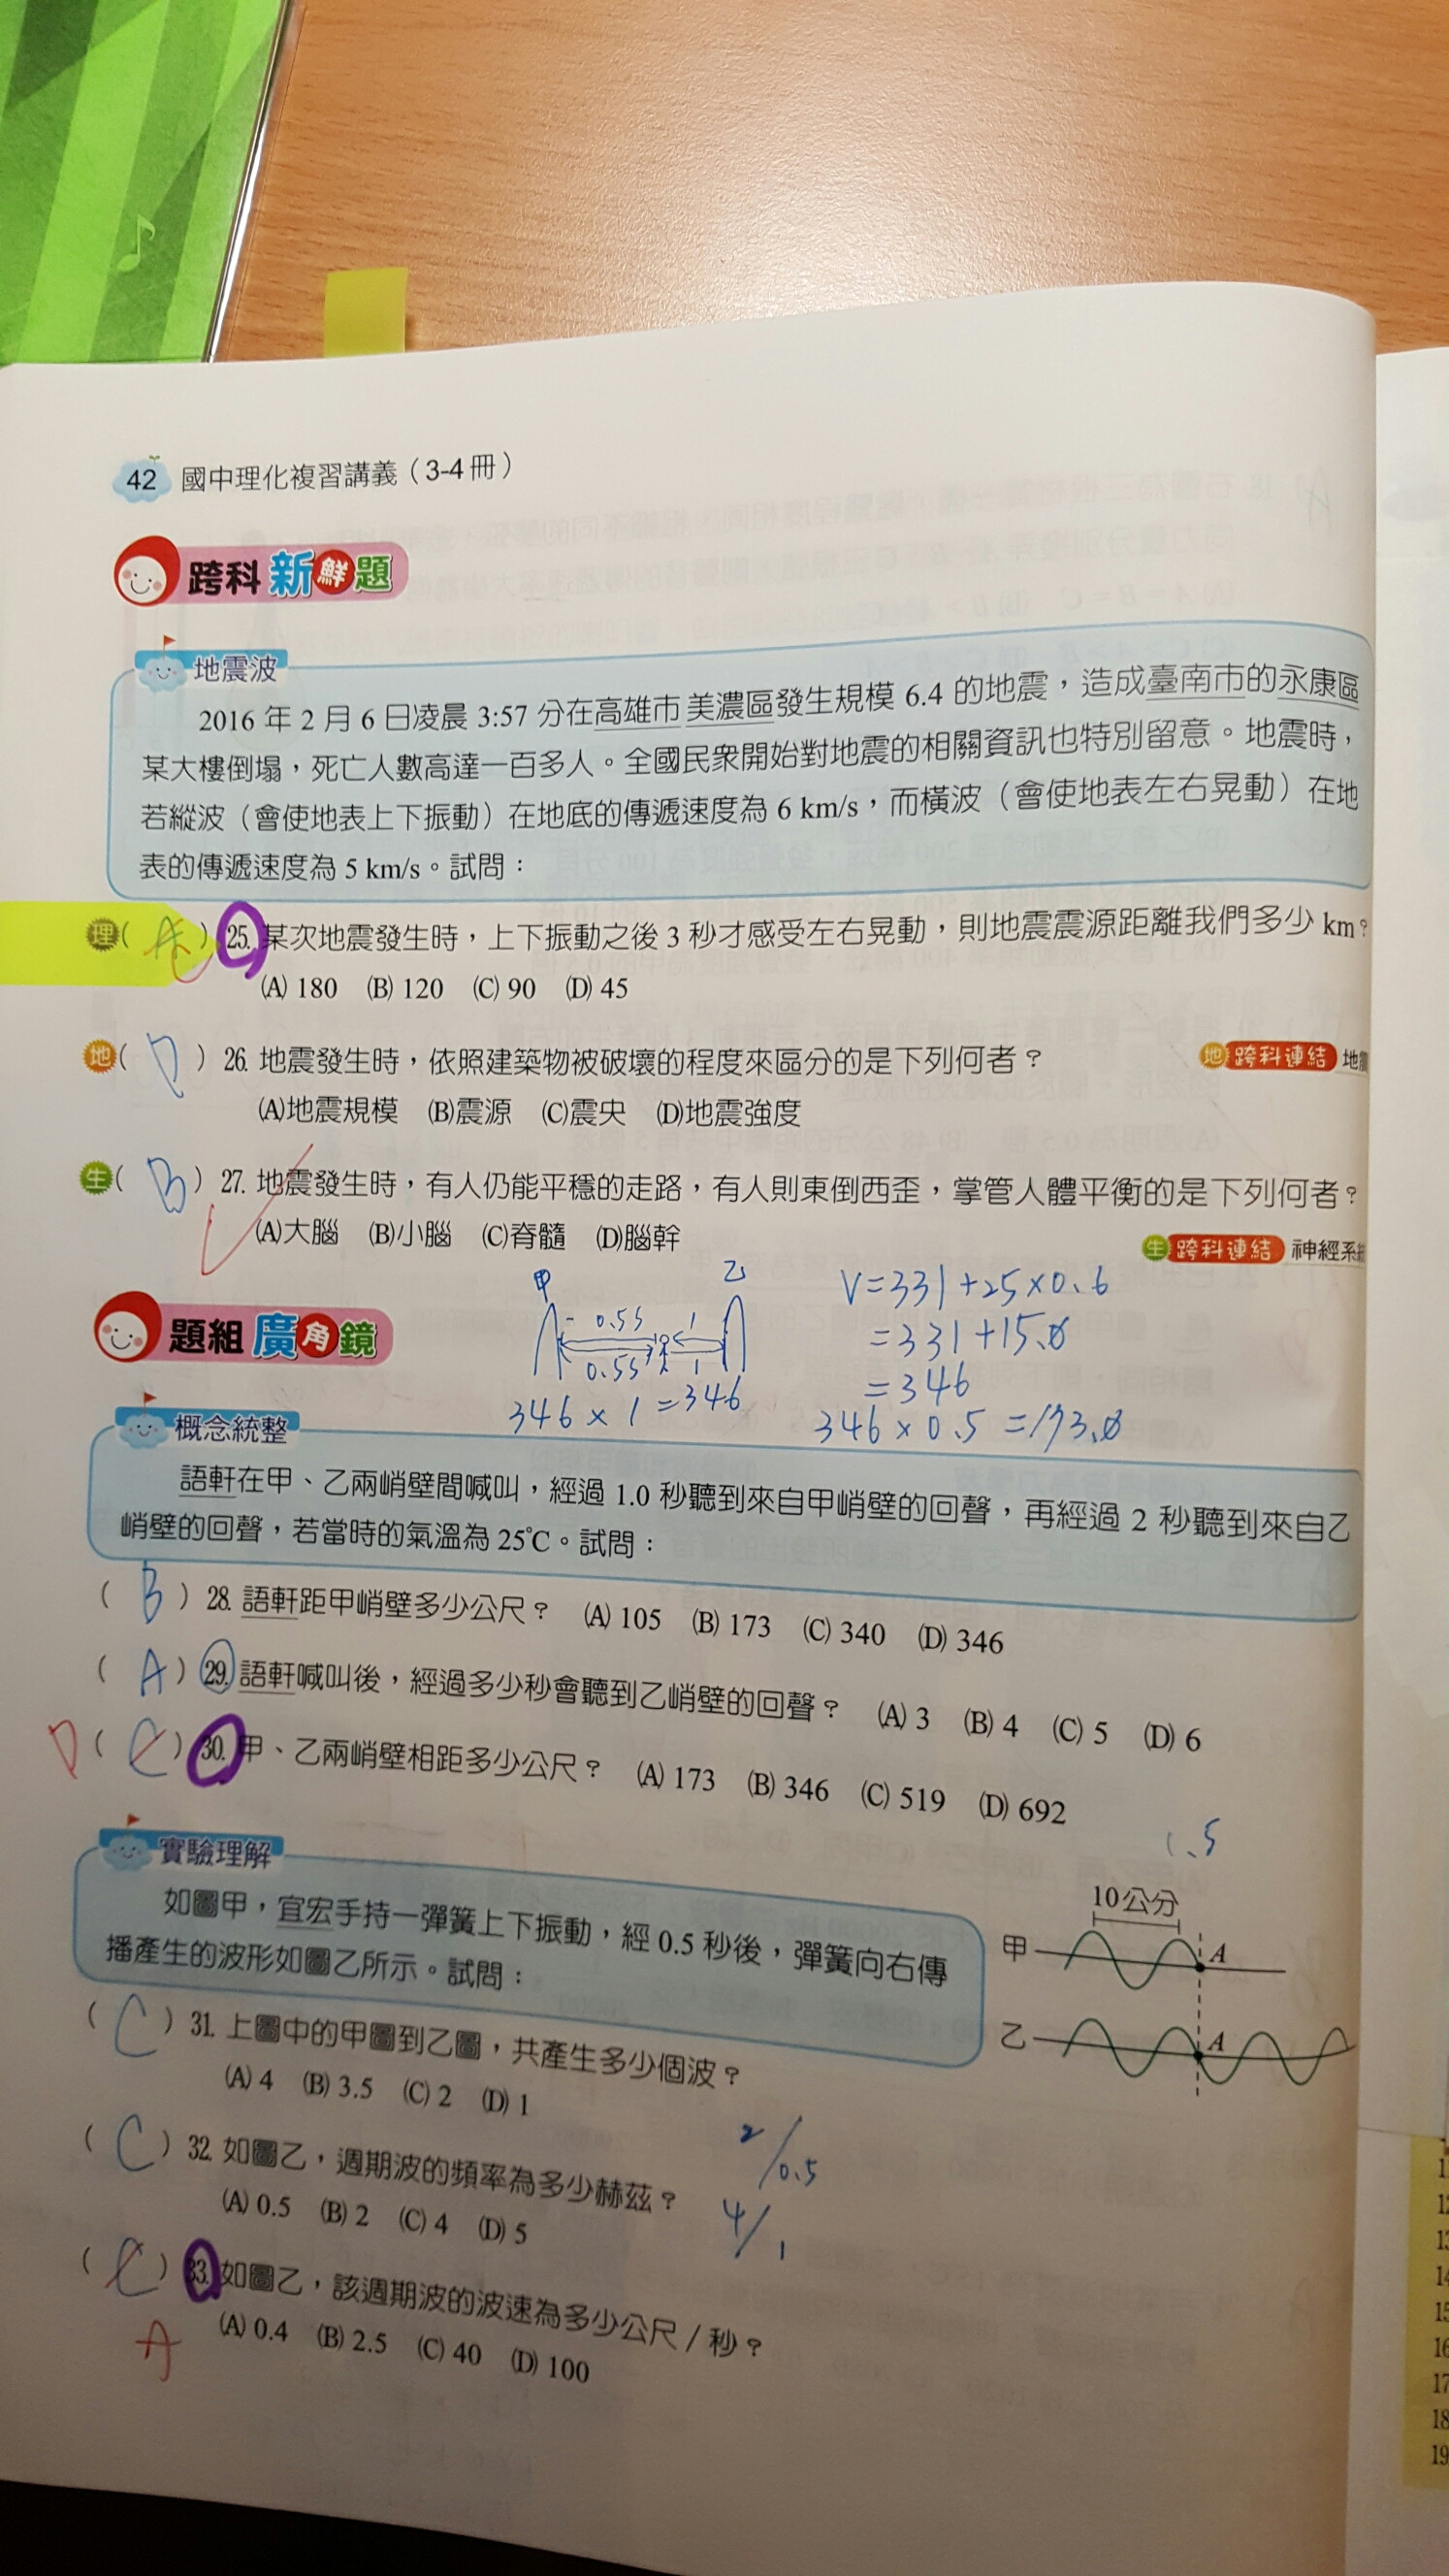 42 國中理化複習講義（3-4冊）
跨科新鮮題
地震波
2016 年 2 月 6 日凌晨 3:57 分在高雄市美濃區發生規模 6.4 的地震，造成臺南市的永康區
某大樓倒塌，死亡人數高達一百多人。全國民眾開始對地震的相關資訊也特別留意。地震時，
若縱波（會使地表上下振動）在地底的傳遞速度為 6 km/s，而橫波（會使地表左右晃動）在地
表的傳遞速度為 5 km/s。試問：
理( C ) 25. 某次地震發生時，上下振動之後 3 秒才感受左右晃動，則地震震源距離我們多少 km？
(A) 180 (B) 120 (C) 90 (D) 45
地( D ) 26. 地震發生時，依照建築物被破壞的程度來區分的是下列何者？
地 跨科連結 地震
(A)地震規模 (B)震源 (C)震央 (D)地震強度
生( B ) 27. 地震發生時，有人仍能平穩的走路，有人則東倒西歪，掌管人體平衡的是下列何者？
(A)大腦 (B)小腦 (C)脊髓 (D)腦幹
生 跨科連結 神經系
甲 乙
0.5s 1
0.5s 1
346 × 1 = 346
V = 331 + 25 × 0.6
= 331 + 15.0
= 346
346 × 0.5 = 173.0
題組廣角鏡
概念統整
語軒在甲、乙兩峭壁間喊叫，經過 1.0 秒聽到來自甲峭壁的回聲，再經過 2 秒聽到來自乙
峭壁的回聲，若當時的氣溫為 25℃。試問：
( B ) 28. 語軒距甲峭壁多少公尺？ (A) 105 (B) 173 (C) 340 (D) 346
( A ) 29. 語軒喊叫後，經過多少秒會聽到乙峭壁的回聲？ (A) 3 (B) 4 (C) 5 (D) 6
D ( C ) 30. 甲、乙兩峭壁相距多少公尺？ (A) 173 (B) 346 (C) 519 (D) 692
1.5
實驗理解
如圖甲，宜宏手持一彈簧上下振動，經 0.5 秒後，彈簧向右傳
播產生的波形如圖乙所示。試問：
10公分
甲 A
乙 A
( C ) 31. 上圖中的甲圖到乙圖，共產生多少個波？
(A) 4 (B) 3.5 (C) 2 (D) 1
( C ) 32. 如圖乙，週期波的頻率為多少赫茲？
(A) 0.5 (B) 2 (C) 4 (D) 5
2/0.5
4/1
( C ) 33. 如圖乙，該週期波的波速為多少公尺／秒？
A
(A) 0.4 (B) 2.5 (C) 40 (D) 100
12
13
14
15
16
17
18
19